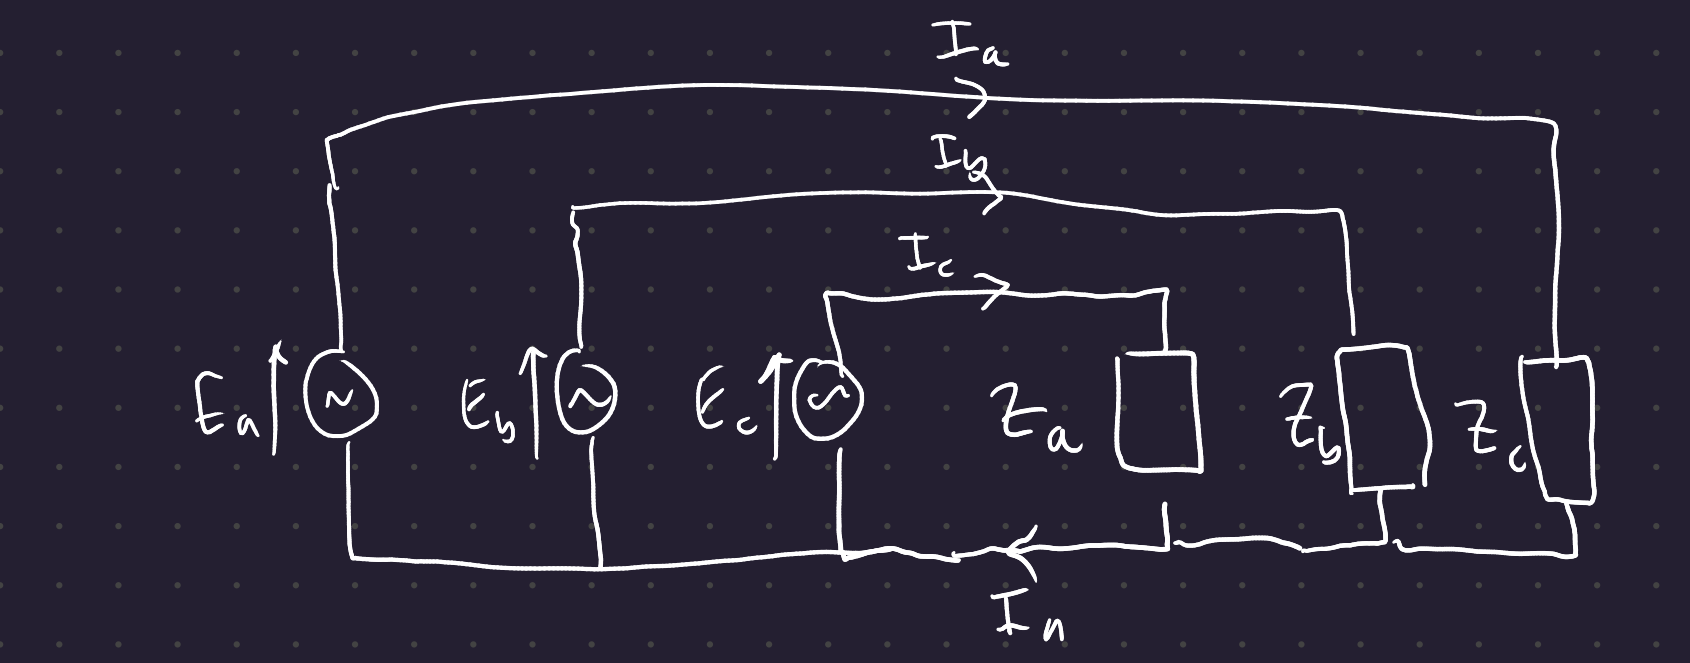 I_a
I_b
I_c
E_a
E_b
E_c
Z_a
Z_b
Z_c
I_n